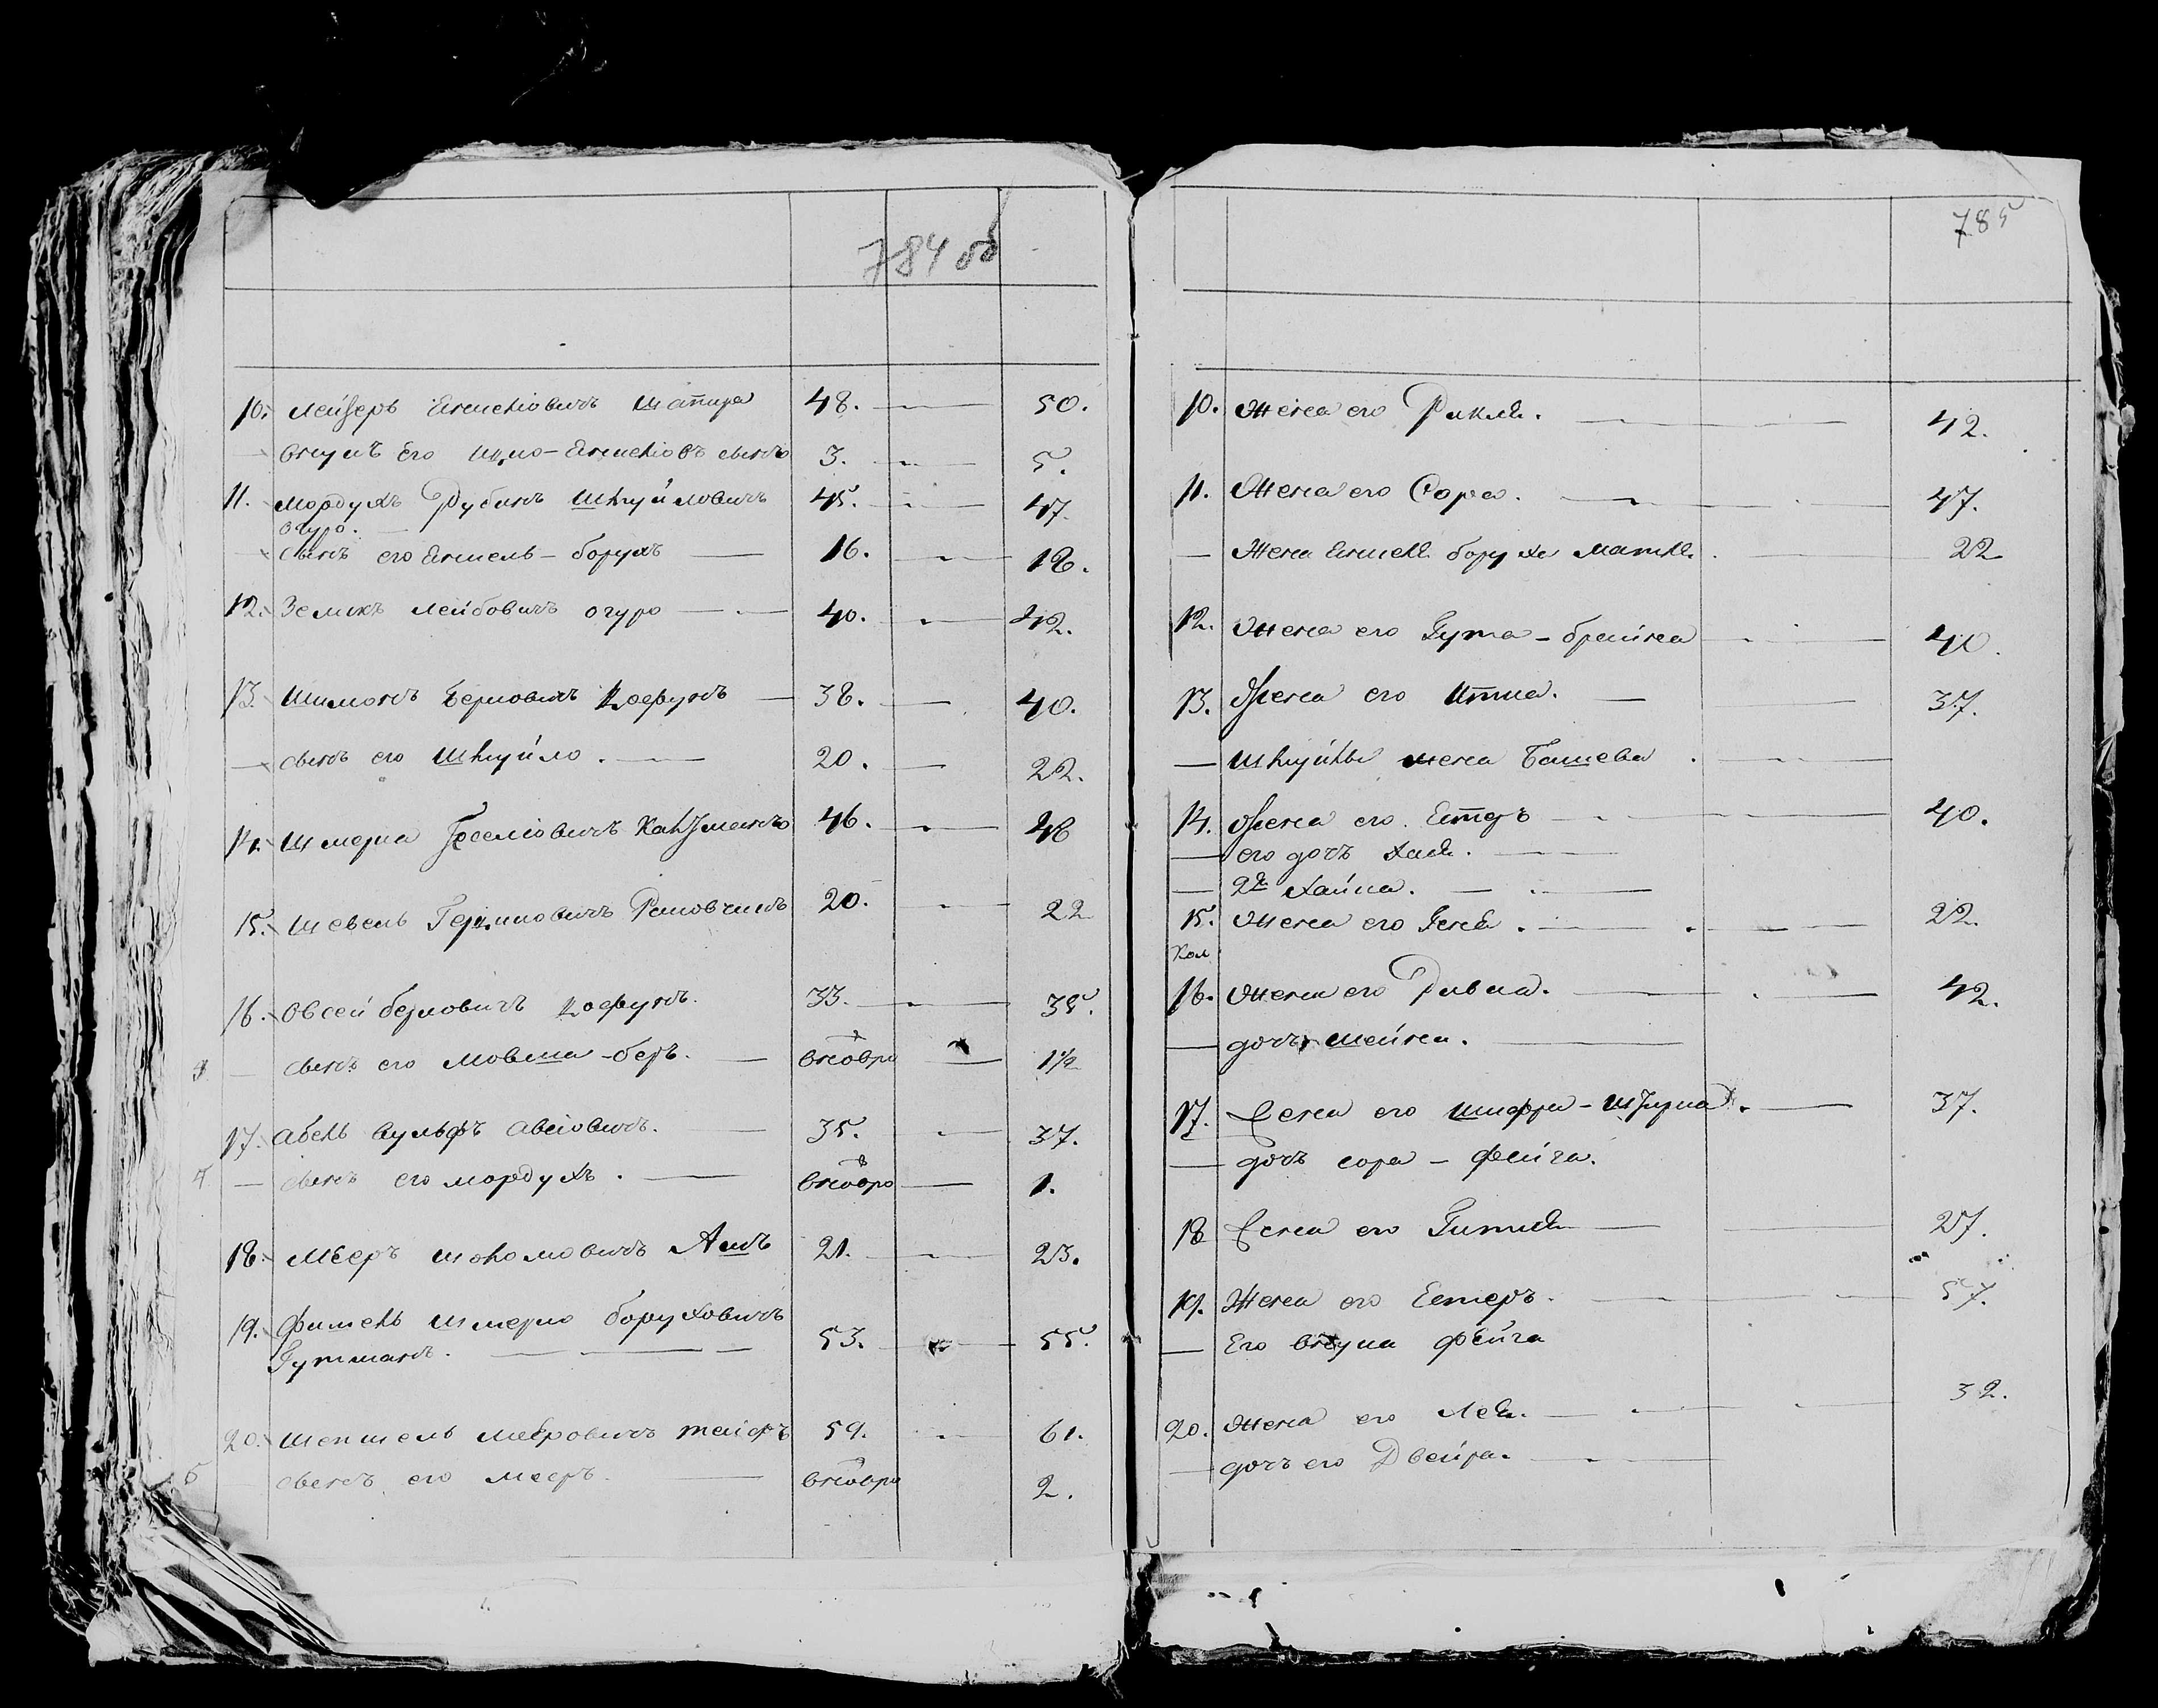 784 об
10. Лейзеръ Геншелiовичъ Шапира 48. 50.
внукъ Его 3. 5.
11. Мордухъ Рубинъ Шмуйловичъ 45. 47.
огуро.
сынъ его Геншель - Борухъ 16. 18.
12. Зеликъ Лейбовичъ огуро 40. 42.
13. Шимонъ Берковичъ 38. 40.
сынъ его Шмуйло. 20. 22.
14. Шмерка Кацманъ 46. 48
15. Шевель 20. 22
16. Овсей Берковичъ 33. 35.
сынъ его Мовша - Беръ. вновро 1½
17. Абель Вульфъ 35. 37.
сынъ его Мордухъ. вновро 1.
18. Мееръ Шоломовичъ Ашъ 21. 23.
19. Фишель Шмерко Боруховичъ 53. 55.
Гутманъ.
20. Шепшель Мееровичъ 59. 61.
5 сынъ его Мееръ. вновро 2.
785
10. Жена его Рикля. 42.
11. Жена его Сора. 47.
Жена Геншеля Боруха Матля. 22
12. Жена его Гута - Брейна 40.
13. Жена его Итка. 37.
Шмуйлы жена Башева.
14. Жена его Естеръ 40.
его дочь Хая.
2я Хайка.
15. Жена его Геня. 22.
16. Жена его Ривка. 42.
дочь Шейна.
17. Жена его Шифра - 37.
дочь Сора - Фейга.
18 Жена его Гитля 27.
19. Жена его Естеръ. 57.
Его внука Фейга
20. Жена его Лея. 32.
дочь его Двейра.